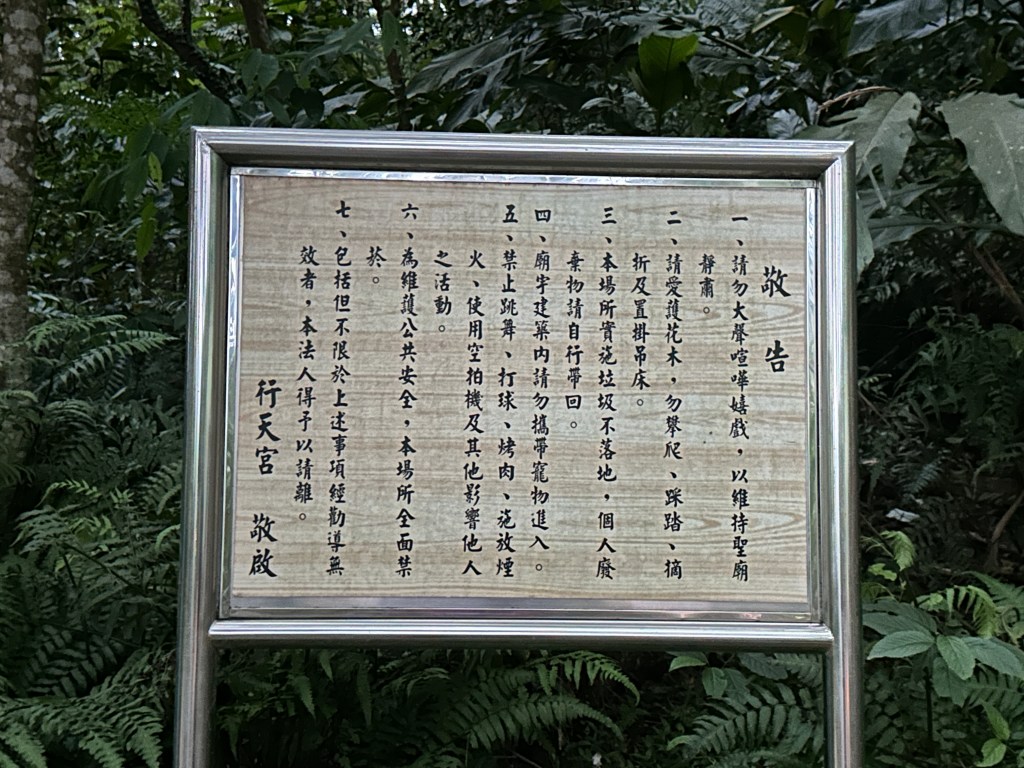 敬告
一、請勿大聲喧嘩嬉戲，以維持聖廟
靜肅。
二、請愛護花木，勿攀爬、踩踏、摘
折及置掛吊床。
三、本場所實施垃圾不落地，個人廢
棄物請自行帶回。
四、廟宇建築內請勿攜帶寵物進入。
五、禁止跳舞、打球、烤肉、施放煙
火、使用空拍機及其他影響他人
之活動。
六、為維護公共安全，本場所全面禁
菸。
七、包括但不限於上述事項經勸導無
效者，本法人得予以請離。
行天宮 敬啟